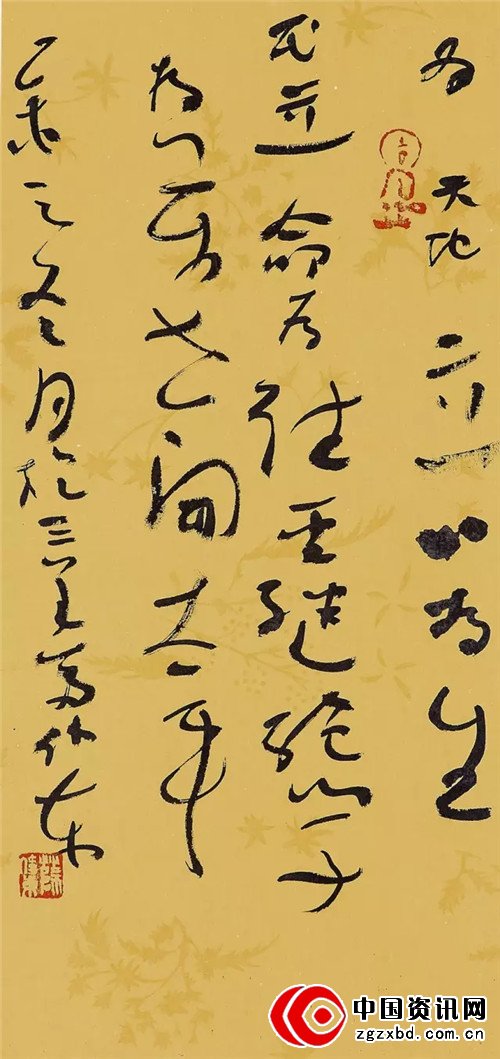 为天地立心为生
民立命为往圣继绝学
为万世开太平
乙未之冬月於三
中国资讯网
zgzxbd.com.cn